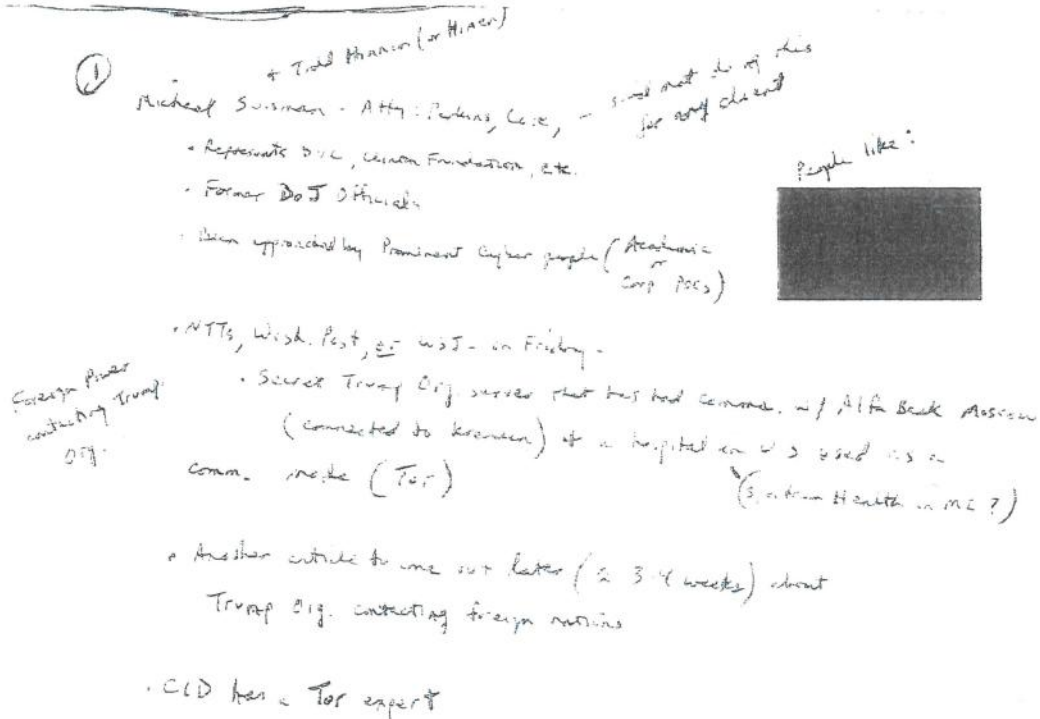 ①
+ Todd (or Hinnen)
Micheal Susman - Atty: Perkins, Coie, - said not do of this
for any client
• Represents DNC, Clinton Foundation, etc.
People like:
• Former DoJ Officials
• Been approached by Prominent Cyber people (Academic
or
Corp POCs)
• NYTs, Wash. Post, or WSJ - on Friday -
Foreign Power
contacting Trump
Org.
• Secret Trump Org. server that has had comms. w/ Alfa Bank Moscow
(connected to) a hospital in US used as a
comm. (Tor)
( Health in MI?)
• Another article to come out later (≈ 3-4 weeks) about
Trump Org. contacting foreign nations
• CID has a Tor expert